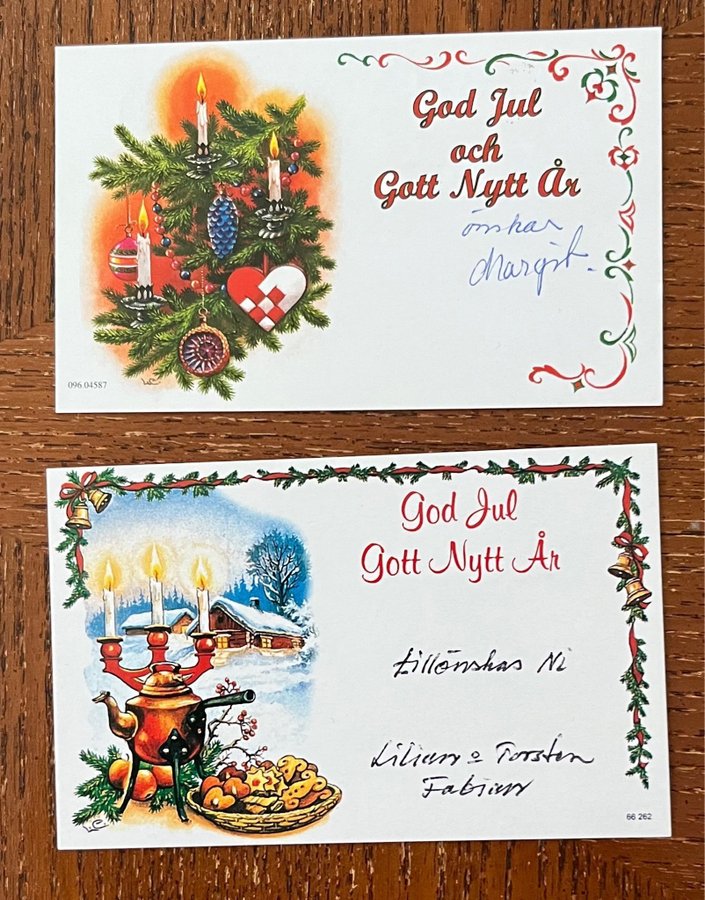 God Jul
och
Gott Nytt År
önskar
Margit.
096.04587
God Jul
Gott Nytt År
Tillönskas Ni
Lilian o Torsten
Fabian
66 262